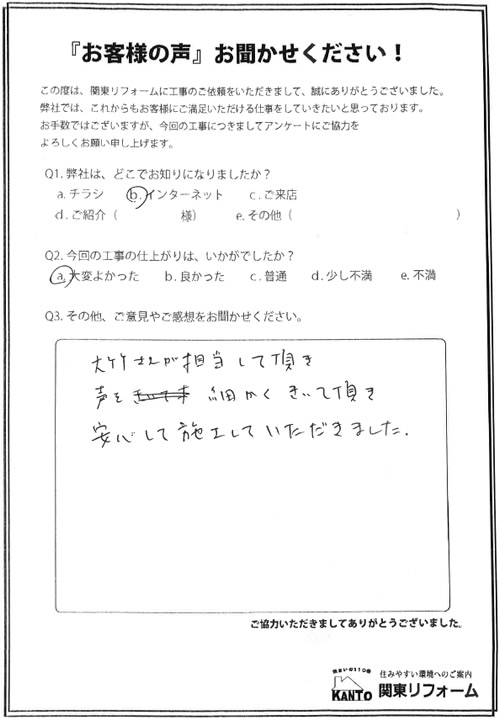 『お客様の声』お聞かせください！
この度は、関東リフォームに工事のご依頼をいただきまして、誠にありがとうございました。
弊社では、これからもお客様にご満足いただける仕事をしていきたいと思っております。
お手数ではございますが、今回の工事につきましてアンケートにご協力を
よろしくお願い申し上げます。
Q1. 弊社は、どこでお知りになりましたか？
a. チラシ b. インターネット c. ご来店
d. ご紹介（ 様） e. その他（ ）
Q2. 今回の工事の仕上がりは、いかがでしたか？
a. 大変よかった b. 良かった c. 普通 d. 少し不満 e. 不満
Q3. その他、ご意見やご感想をお聞かせください。
大竹さんが担当して頂き
声を 細かく きいて頂き
安心して施工していただきました.
ご協力いただきましてありがとうございました。
住まいの110番
KANTO
住みやすい環境へのご案内
関東リフォーム